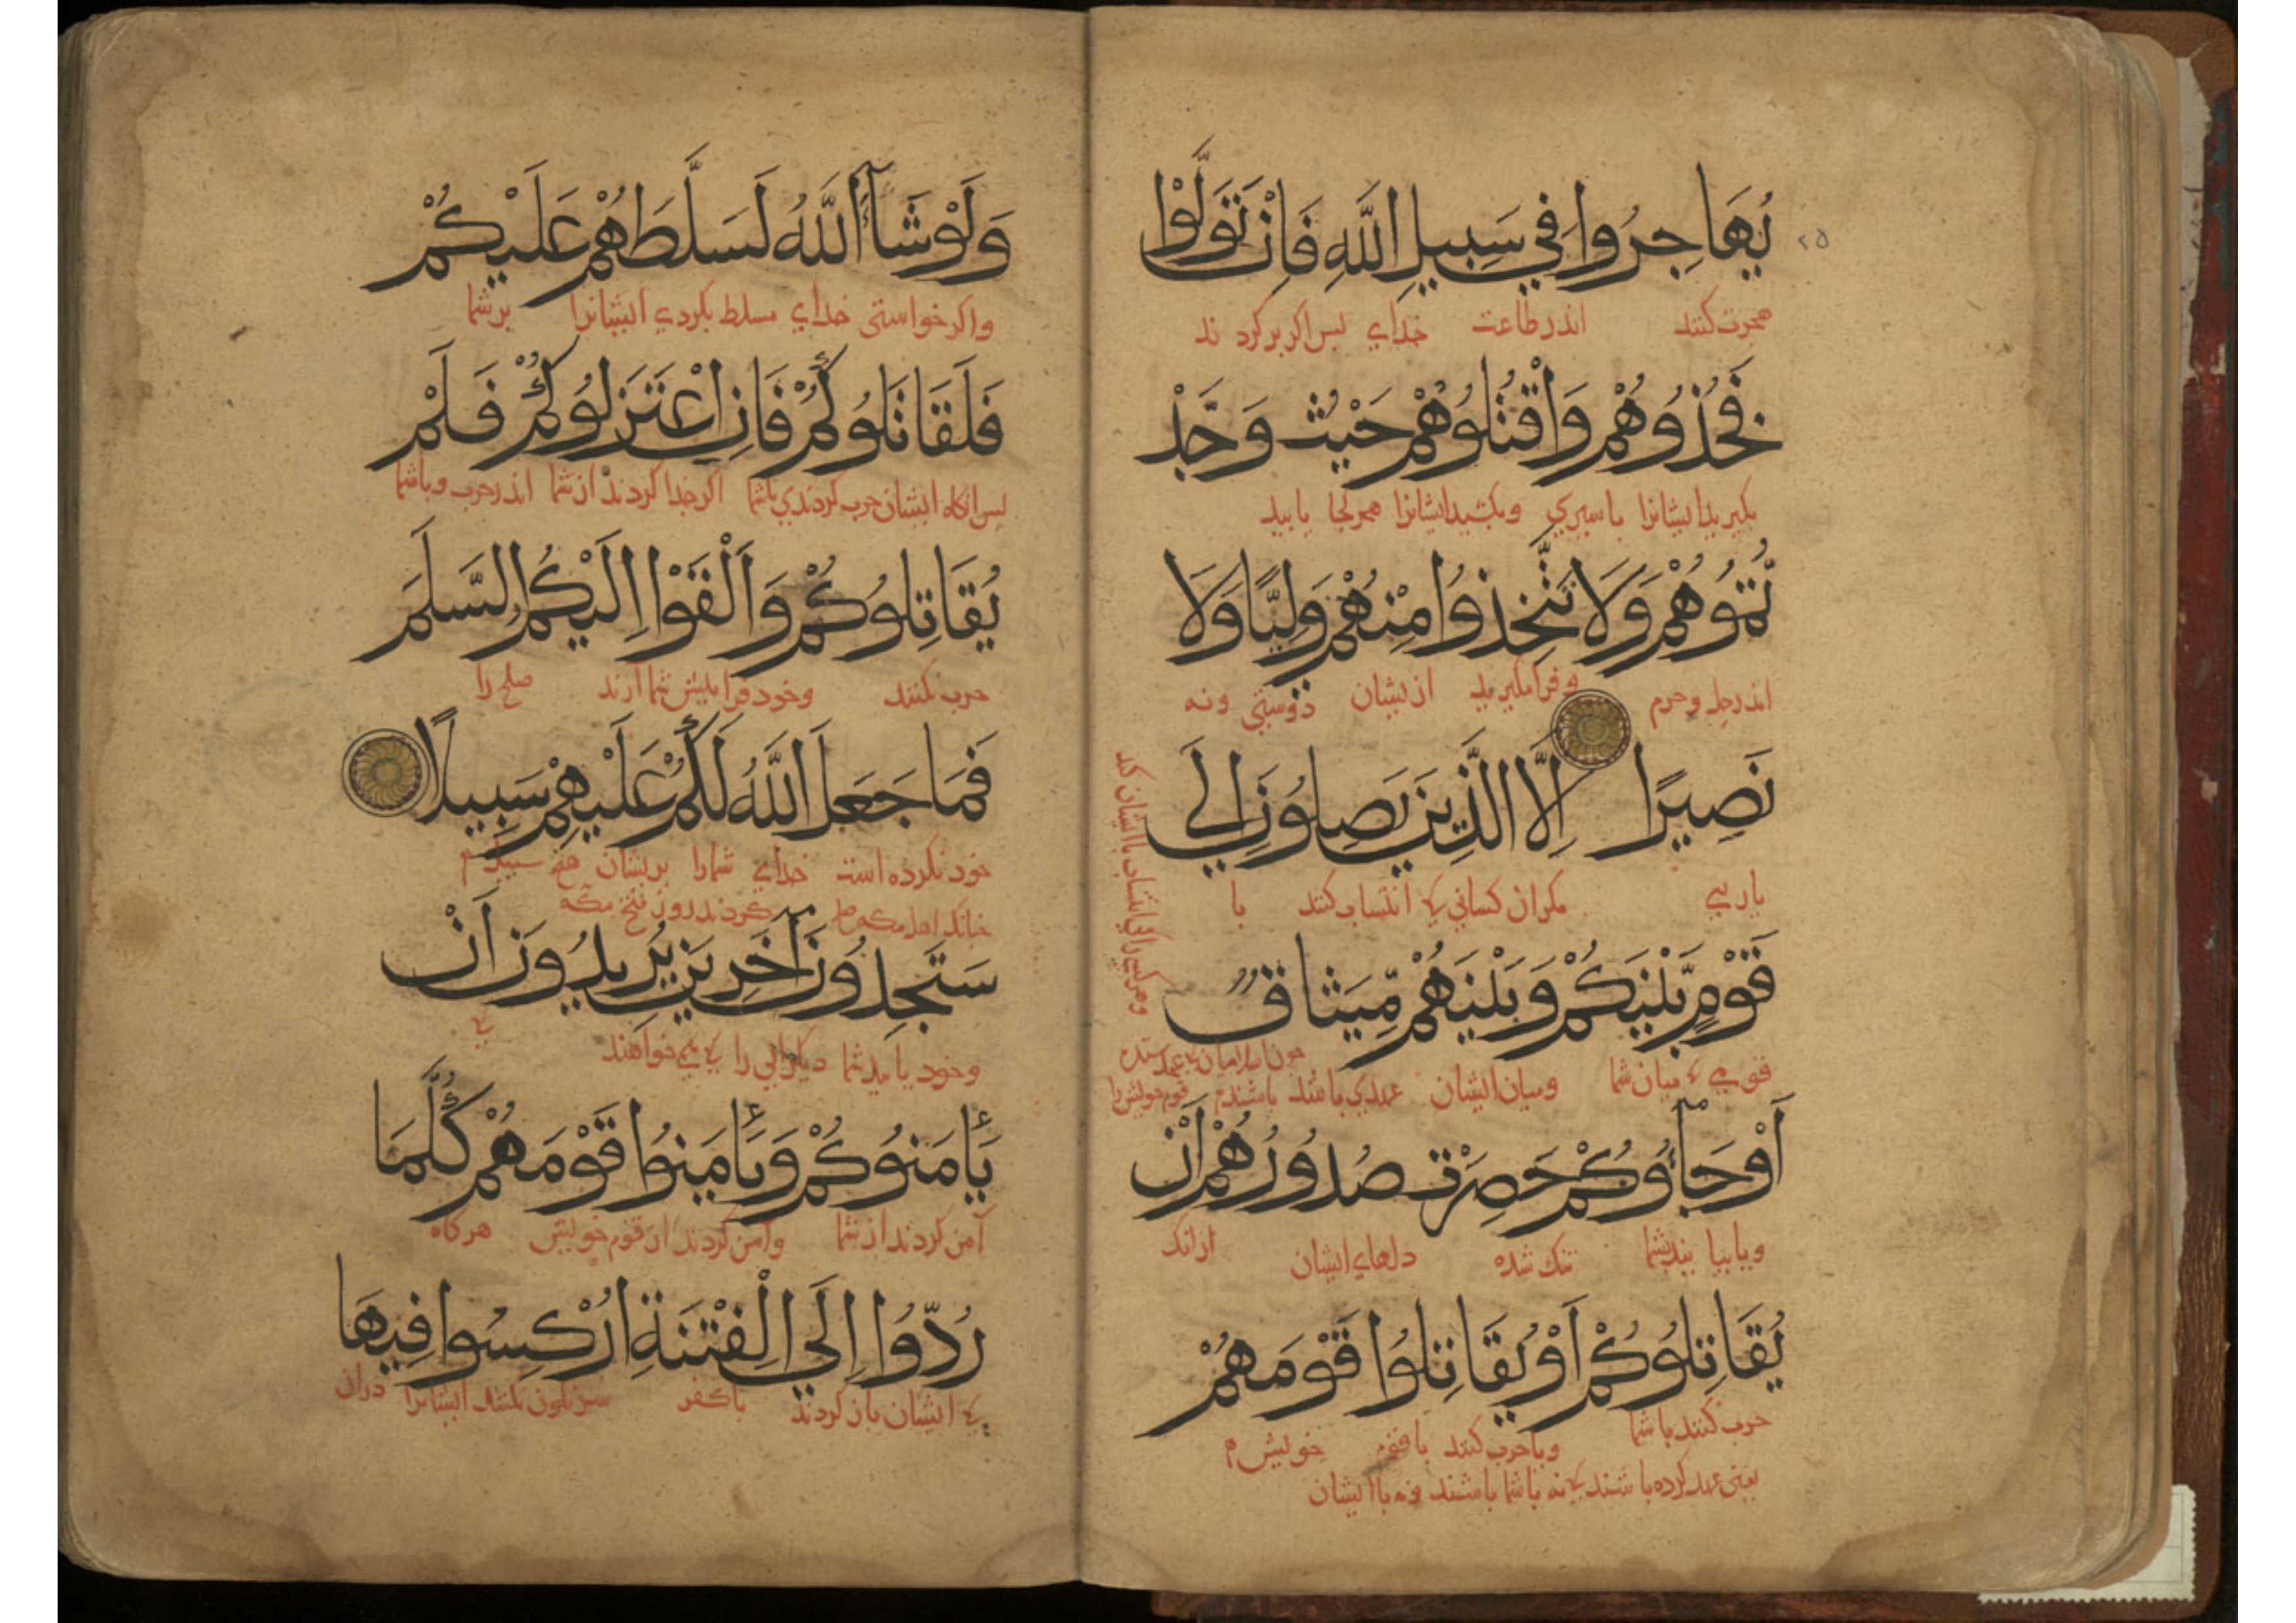 ٢٥
يُهَاجِرُوا فِي سَبِيلِ اللَّهِ فَاِنْ تَوَلَّوْا
هجرت کنند اندر طاعت خدای بس اکر برکردند
فَخُذُوهُمْ وَاقْتُلُوهُمْ حَيْثُ وَجَدْ
بکیرید ایشانرا باسیری وبکشید ایشانرا هرکجا یابید
تُمُوهُمْ وَلَا تَتَّخِذُوا مِنْهُمْ وَلِيًّا وَلَا
اندر حل وحرم وفرا مکیرید ازیشان دوستی ونه
نَصِيرًا اِلَّا الَّذِينَ يَصِلُونَ اِلَى
یاریی مکران کسانی که انتساب کنند با
قَوْمٍ بَيْنَكُمْ وَبَيْنَهُمْ مِيثَاقٌ
قومی که میان شما ومیان ایشان عهدی باشد باشندم قوم خویش را
اَوْ جَآؤُكُمْ حَصِرَتْ صُدُورُهُمْ اَنْ
ویا بیایند بشما تنک شده دلهای ایشان ازانک
يُقَاتِلُوكُمْ اَوْ يُقَاتِلُوا قَوْمَهُمْ
حرب کنند با شما ویا حرب کنند با قوم خویش م
یعنی عهد کرده باشند که نه با شما باشند ونه با ایشان
وَلَوْ شَآءَ اللَّهُ لَسَلَّطَهُمْ عَلَيْكُمْ
واکر خواستی خدای مسلط بکردی ایشانرا برشما
فَلَقَاتَلُوكُمْ فَاِنِ اعْتَزَلُوكُمْ فَلَمْ
بس انکاه ایشان حرب کردندی باشما اکر جدا کردند از شما اندر حرب وباشما
يُقَاتِلُوكُمْ وَاَلْقَوْا اِلَيْكُمُ السَّلَمَ
حرب نکنند وخود فرا پیش شما آرند صلح را
فَمَا جَعَلَ اللَّهُ لَكُمْ عَلَيْهِمْ سَبِيلًا
خود نکرده است خدای شمارا بریشان هیچ سبیل م
جنانک اهل مکه صلح کردند روز فتح مکه
سَتَجِدُونَ آخَرِينَ يُرِيدُونَ اَنْ
وخود یابید شما دیکرانی را که می خواهند که
يَأْمَنُوكُمْ وَيَأْمَنُوا قَوْمَهُمْ كُلَّمَا
آمن کردند از شما وآمن کردند از قوم خویش هرکاه
رُدُّوا اِلَى الْفِتْنَةِ اُرْكِسُوا فِيهَا
که ایشان باز کردند با کفر سرنکون بکنند ایشانرا دران